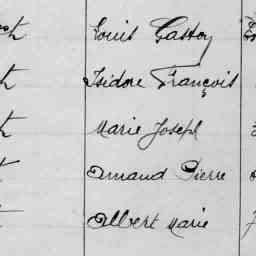 Louis Gaston
Isidore François
Marie Joseph
Armand Pierre
Albert Marie